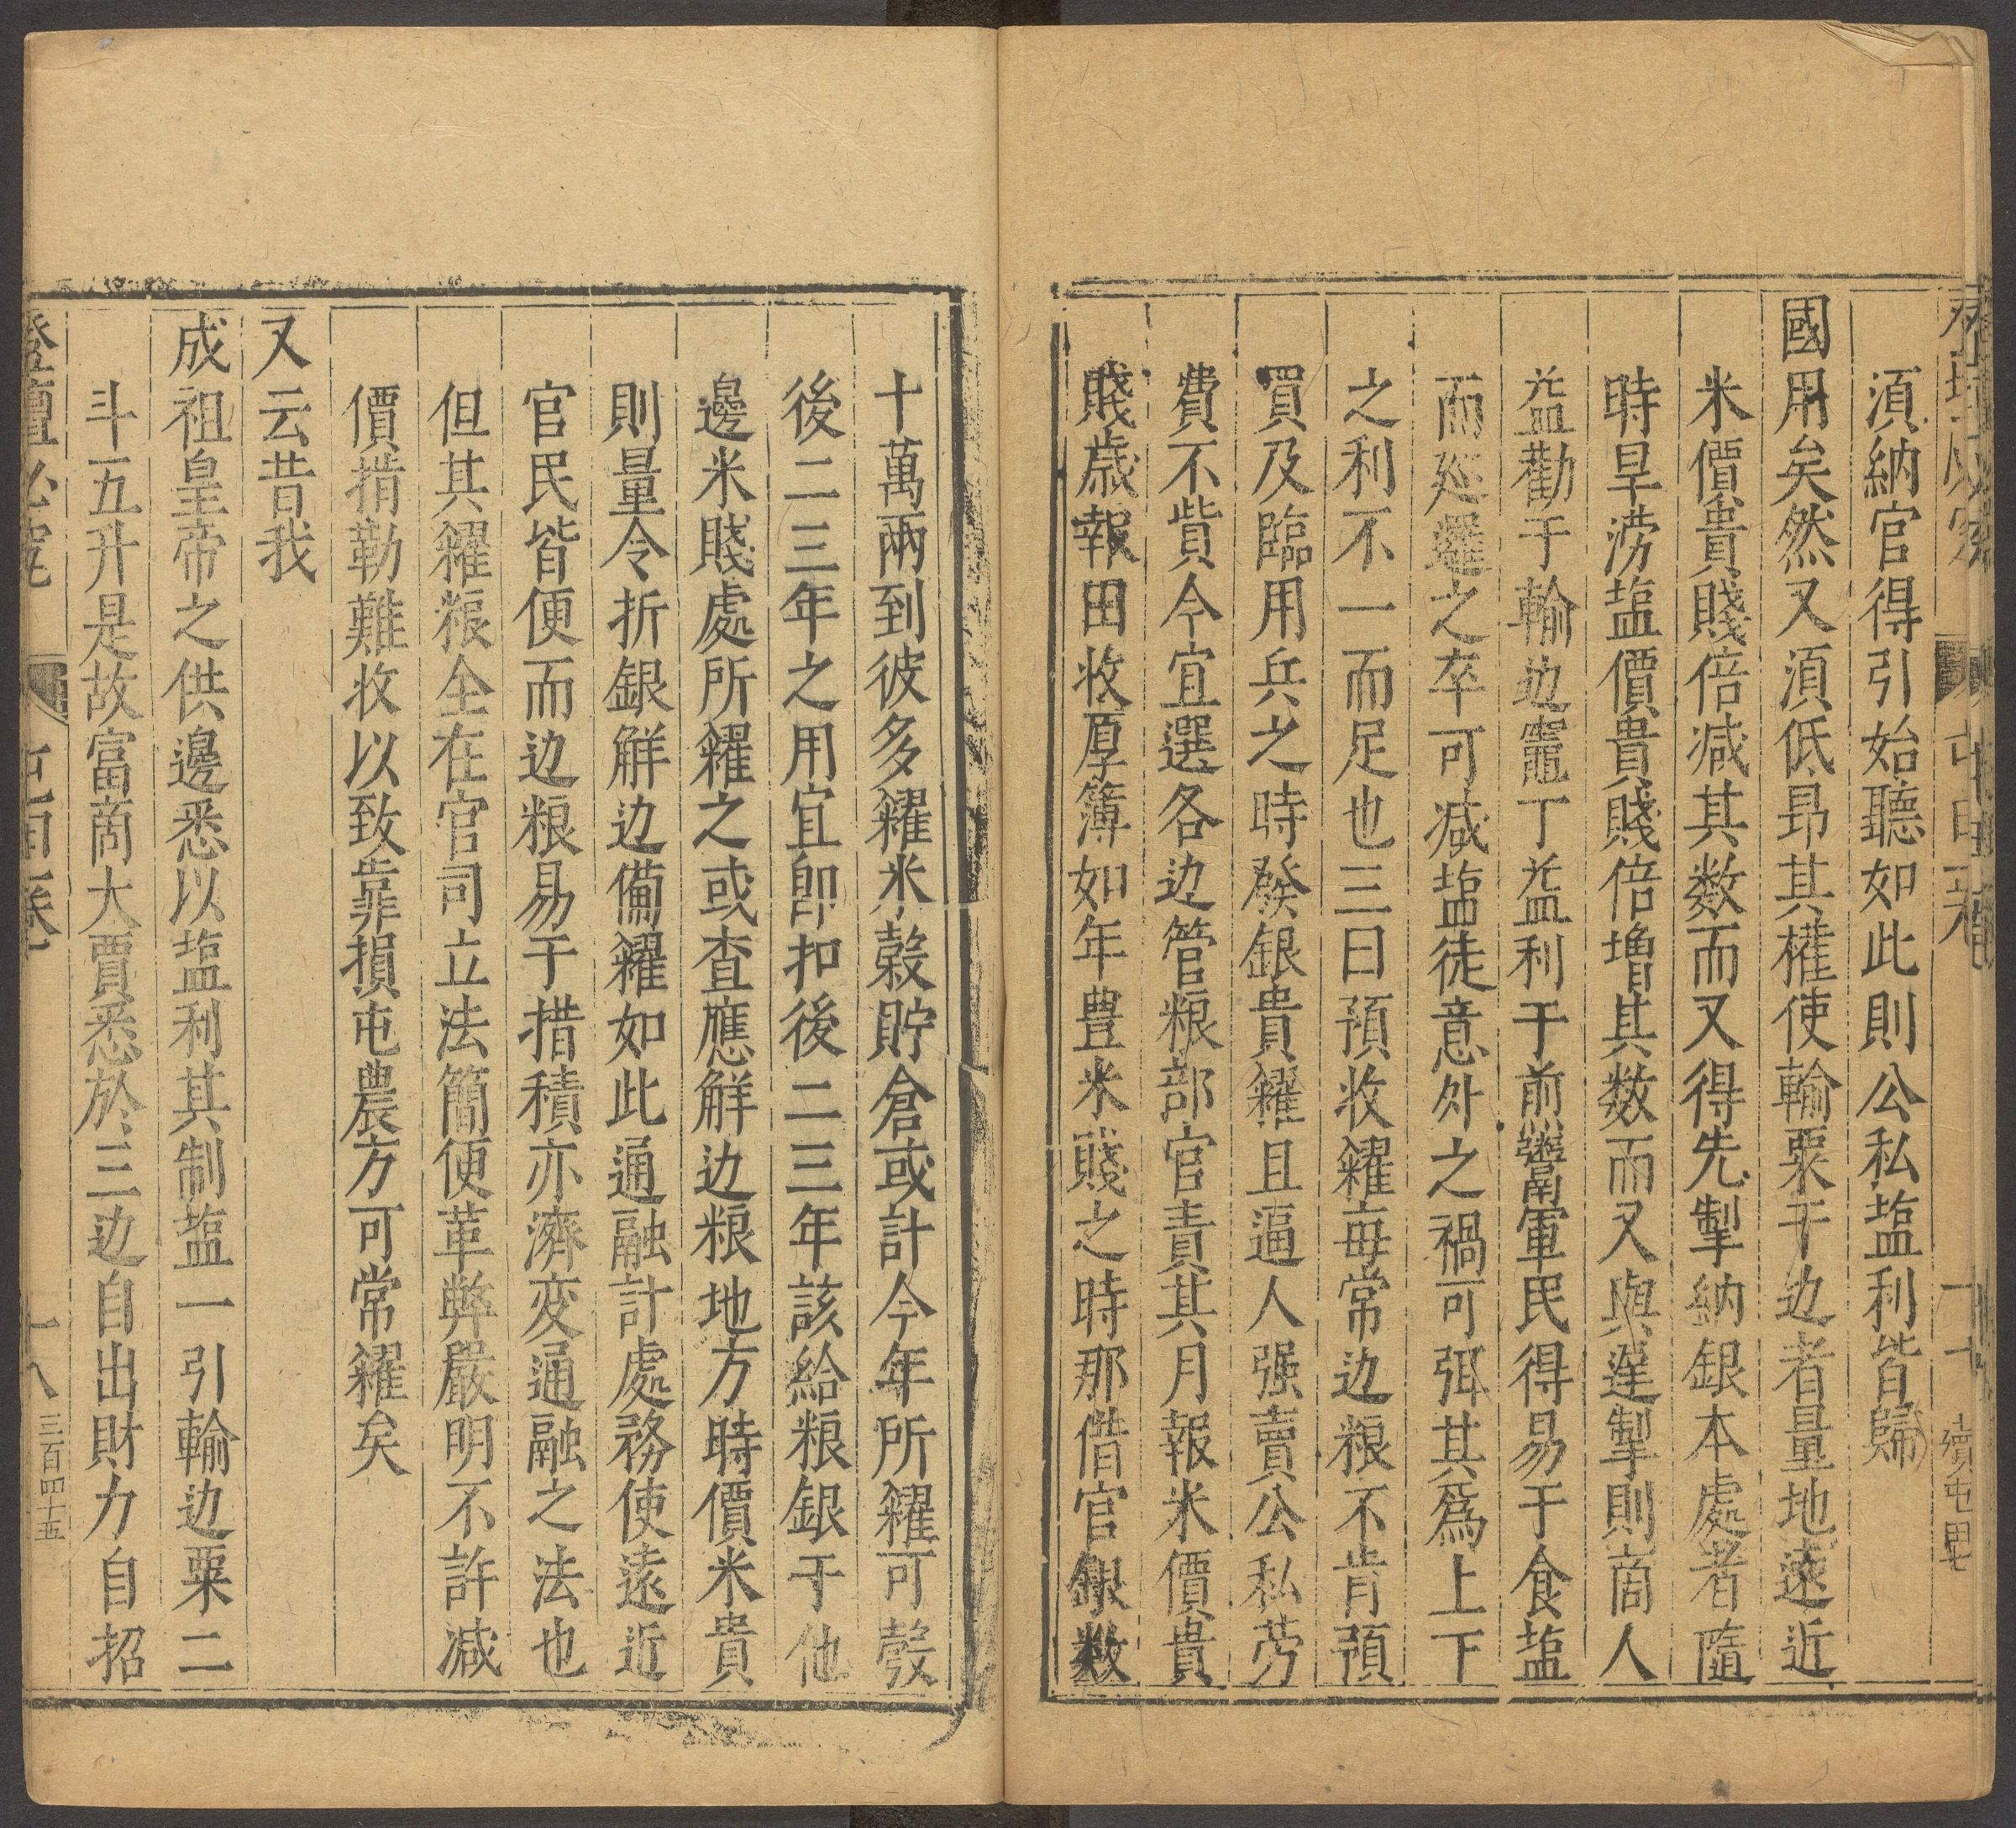 湏納官得引始聽如此則公私塩利皆歸
國用矣然又湏低昻其權使輸粟于边者量地遠近
米價貴賤倍减其数而又得先掣納銀本處者隨
時旱澇塩價貴賤倍增其数而又與遲掣則商人
益勸于輸边竈丁益利于煎鬻軍民得易于食塩
而廵邏之卒可减塩徒意外之禍可弭其爲上下
之利不一而足也三曰預收糴毎常边粮不肯預
買及臨用兵之時發銀貴糴且逼人强賣公私劳
費不貲今宜選各边管粮部官責其月報米價貴
賤歳報田收厚簿如年豊米賤之時那借官銀数
十萬兩到彼多糴米穀貯倉或計今年所糴可彀
後二三年之用宜卽扣後二三年該給粮銀于他
邊米賤處所糴之或查應觧边粮地方時價米貴
則量令折銀觧边備糴如此通融計處務使遠近
官民皆便而边粮易于措積亦濟变通融之法也
但其糴粮全在官司立法簡便革弊嚴明不許减
價掯勒難收以致靠損屯農方可常糴矣
又云昔我
成祖皇帝之供邊悉以塩利其制塩一引輸边粟二
斗五升是故富商大賈悉於三边自出財力自招
登壇必究
屯田二卷
十八
三百四十五